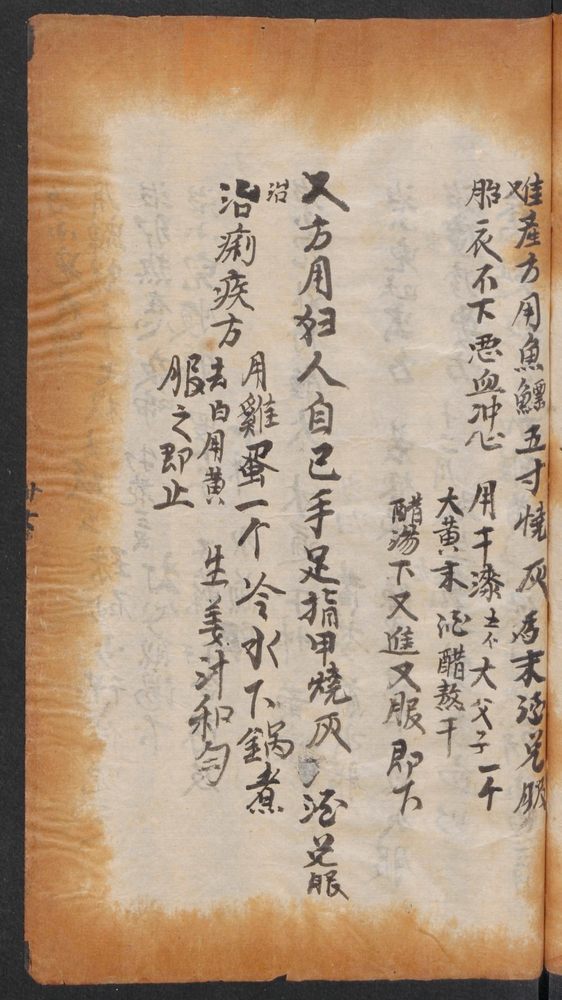 难產方用魚鰾五寸燒灰為末酒兌服
胎衣不下惡血冲心
用干漆五个大父子一个
大黄末酒醋敖干
醋湯下又進又服即下
又方用妇人自己手足指甲燒灰酒兌服
治
治痢疾方
用雞蛋一个冷水下鍋煮
去白用黄生姜汁和匀
服之即止